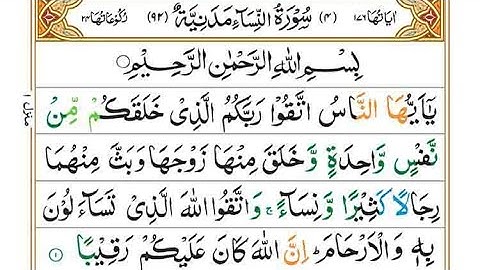 اٰیَاتُهَا ١٧٦ (٤) سُوْرَةُ النِّسَآءِ مَدَنِیَّةٌ (٩٢) رُكُوْعَاتُهَا ٢٤
بِسْمِ اللهِ الرَّحْمٰنِ الرَّحِیْمِ
یٰۤاَیُّهَا النَّاسُ اتَّقُوْا رَبَّكُمُ الَّذِیْ خَلَقَكُمْ مِّنْ
نَّفْسٍ وَّاحِدَةٍ وَّخَلَقَ مِنْهَا زَوْجَهَا وَبَثَّ مِنْهُمَا
رِجَالًا كَثِیْرًا وَّنِسَآءً ۚ وَاتَّقُوا اللهَ الَّذِیْ تَسَآءَلُوْنَ
بِهٖ وَالْاَرْحَامَ ؕ اِنَّ اللهَ كَانَ عَلَیْكُمْ رَقِیْبًا ١
منزل ١